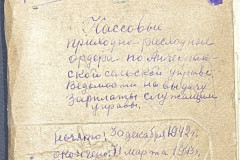 Кассовые
приходно-расходные
ордера по
ской сельской управе.
Ведомости на выдачу
зарплаты служащим
управы.
начато: 30 декабря 1942 г.
окончено: 31 марта 1943 г.